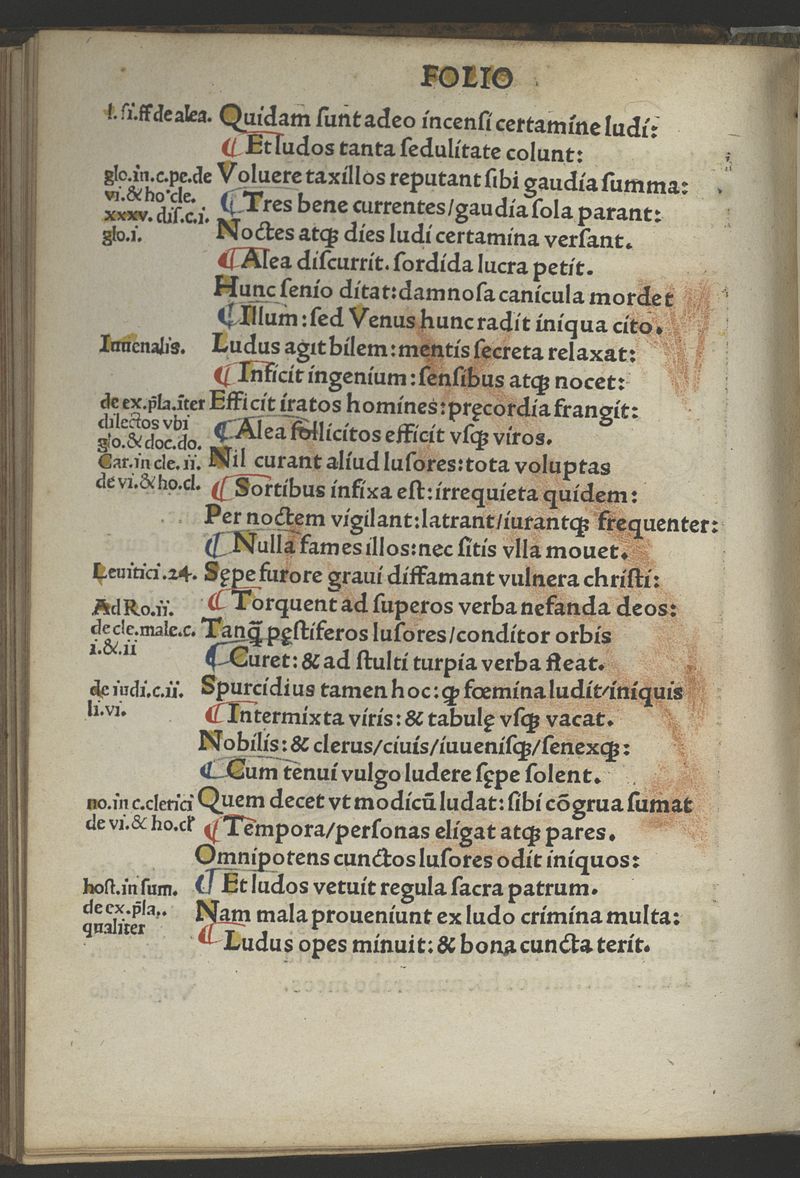 FOLIO
l. si. ff de alea. Quidam sunt adeo incensi certamine ludi:
¶ Et ludos tanta sedulitate colunt:
glo. in. c. pe. de Voluere taxillos reputant sibi gaudia summa:
vi. & ho. cle. ¶ Tres bene currentes/gaudia sola parant:
xxxv. dis. c. i.
glo. i. Noctes atqꝫ dies ludi certamina versant.
¶ Alea discurrit. sordida lucra petit.
Hunc senio ditat: damnosa canicula mordet
¶ Illum: sed Venus hunc radit iniqua cito.
Iuuenalis. Ludus agit bilem: mentis secreta relaxat:
¶ Inficit ingenium: sensibus atqꝫ nocet:
de ex. p̃la. iter Efficit iratos homines: pręcordia frangit:
dilectos vbi
glo. & doc. do. ¶ Alea sollicitos efficit vsqꝫ viros.
Car. in cle. ii. Nil curant aliud lusores: tota voluptas
de vi. & ho. cl. ¶ Sortibus infixa est: irrequieta quidem:
Per noctem vigilant: latrant/iurantqꝫ frequenter:
¶ Nulla fames illos: nec sitis vlla mouet.
Leuitici. 24. Sępe furore graui diffamant vulnera christi:
Ad Ro. ii. ¶ Torquent ad superos verba nefanda deos:
de cle. male. c. Tanq̃ pęstiferos lusores/conditor orbis
i. & . ii ¶ Curet: & ad stulti turpia verba fleat.
de iudi. c. ii. Spurcidius tamen hoc: qꝫ fœmina ludit/iniquis
li. vi. ¶ Intermixta viris: & tabulę vsqꝫ vacat.
Nobilis: & clerus/ciuis/iuuenisqꝫ/senexqꝫ:
¶ Cum tenui vulgo ludere sępe solent.
no. in c. clerici Quem decet vt modicũ ludat: sibi cõgrua sumat
de vi. & ho. cl' ¶ Tempora/personas eligat atqꝫ pares.
Omnipotens cunctos lusores odit iniquos:
host. in sum. ¶ Et ludos vetuit regula sacra patrum.
de ex. p̃la.. Nam mala proueniunt ex ludo crimina multa:
qualiter ¶ Ludus opes minuit: & bona cuncta terit.